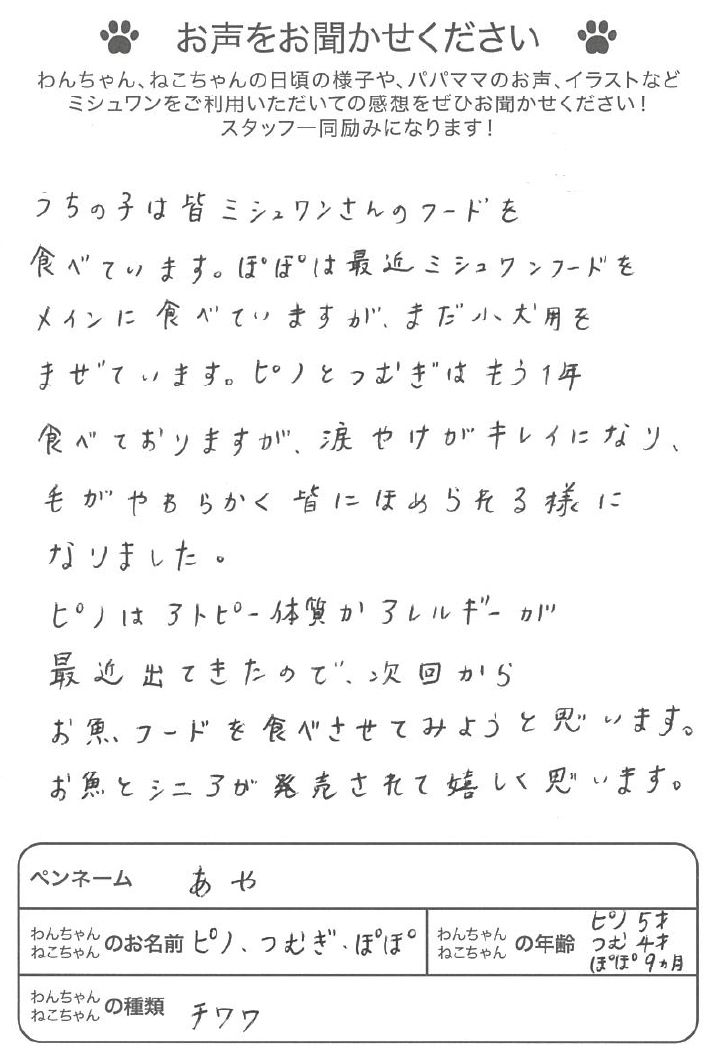 お声をお聞かせください
わんちゃん、ねこちゃんの日頃の様子や、パパママのお声、イラストなど
ミシュワンをご利用いただいての感想をぜひお聞かせください！
スタッフ一同励みになります！
うちの子は皆ミシュワンさんのフードを
食べています。ぽぽは最近ミシュワンフードを
メインに食べていますが、まだ小犬用を
まぜています。ピノとつむぎはもう1年
食べておりますが、涙やけがキレイになり、
毛がやわらかく皆にほめられる様に
なりました。
ピノはアトピー体質かアレルギーが
最近出てきたので、次回から
お魚フードを食べさせてみようと思います。
お魚とシニアが発売されて嬉しく思います。
ペンネーム あや
わんちゃん ねこちゃん のお名前 ピノ、つむぎ、ぽぽ
わんちゃん ねこちゃん の年齢 ピノ 5才
つむ 4才
ぽぽ 9ヵ月
わんちゃん ねこちゃん の種類 チワワ